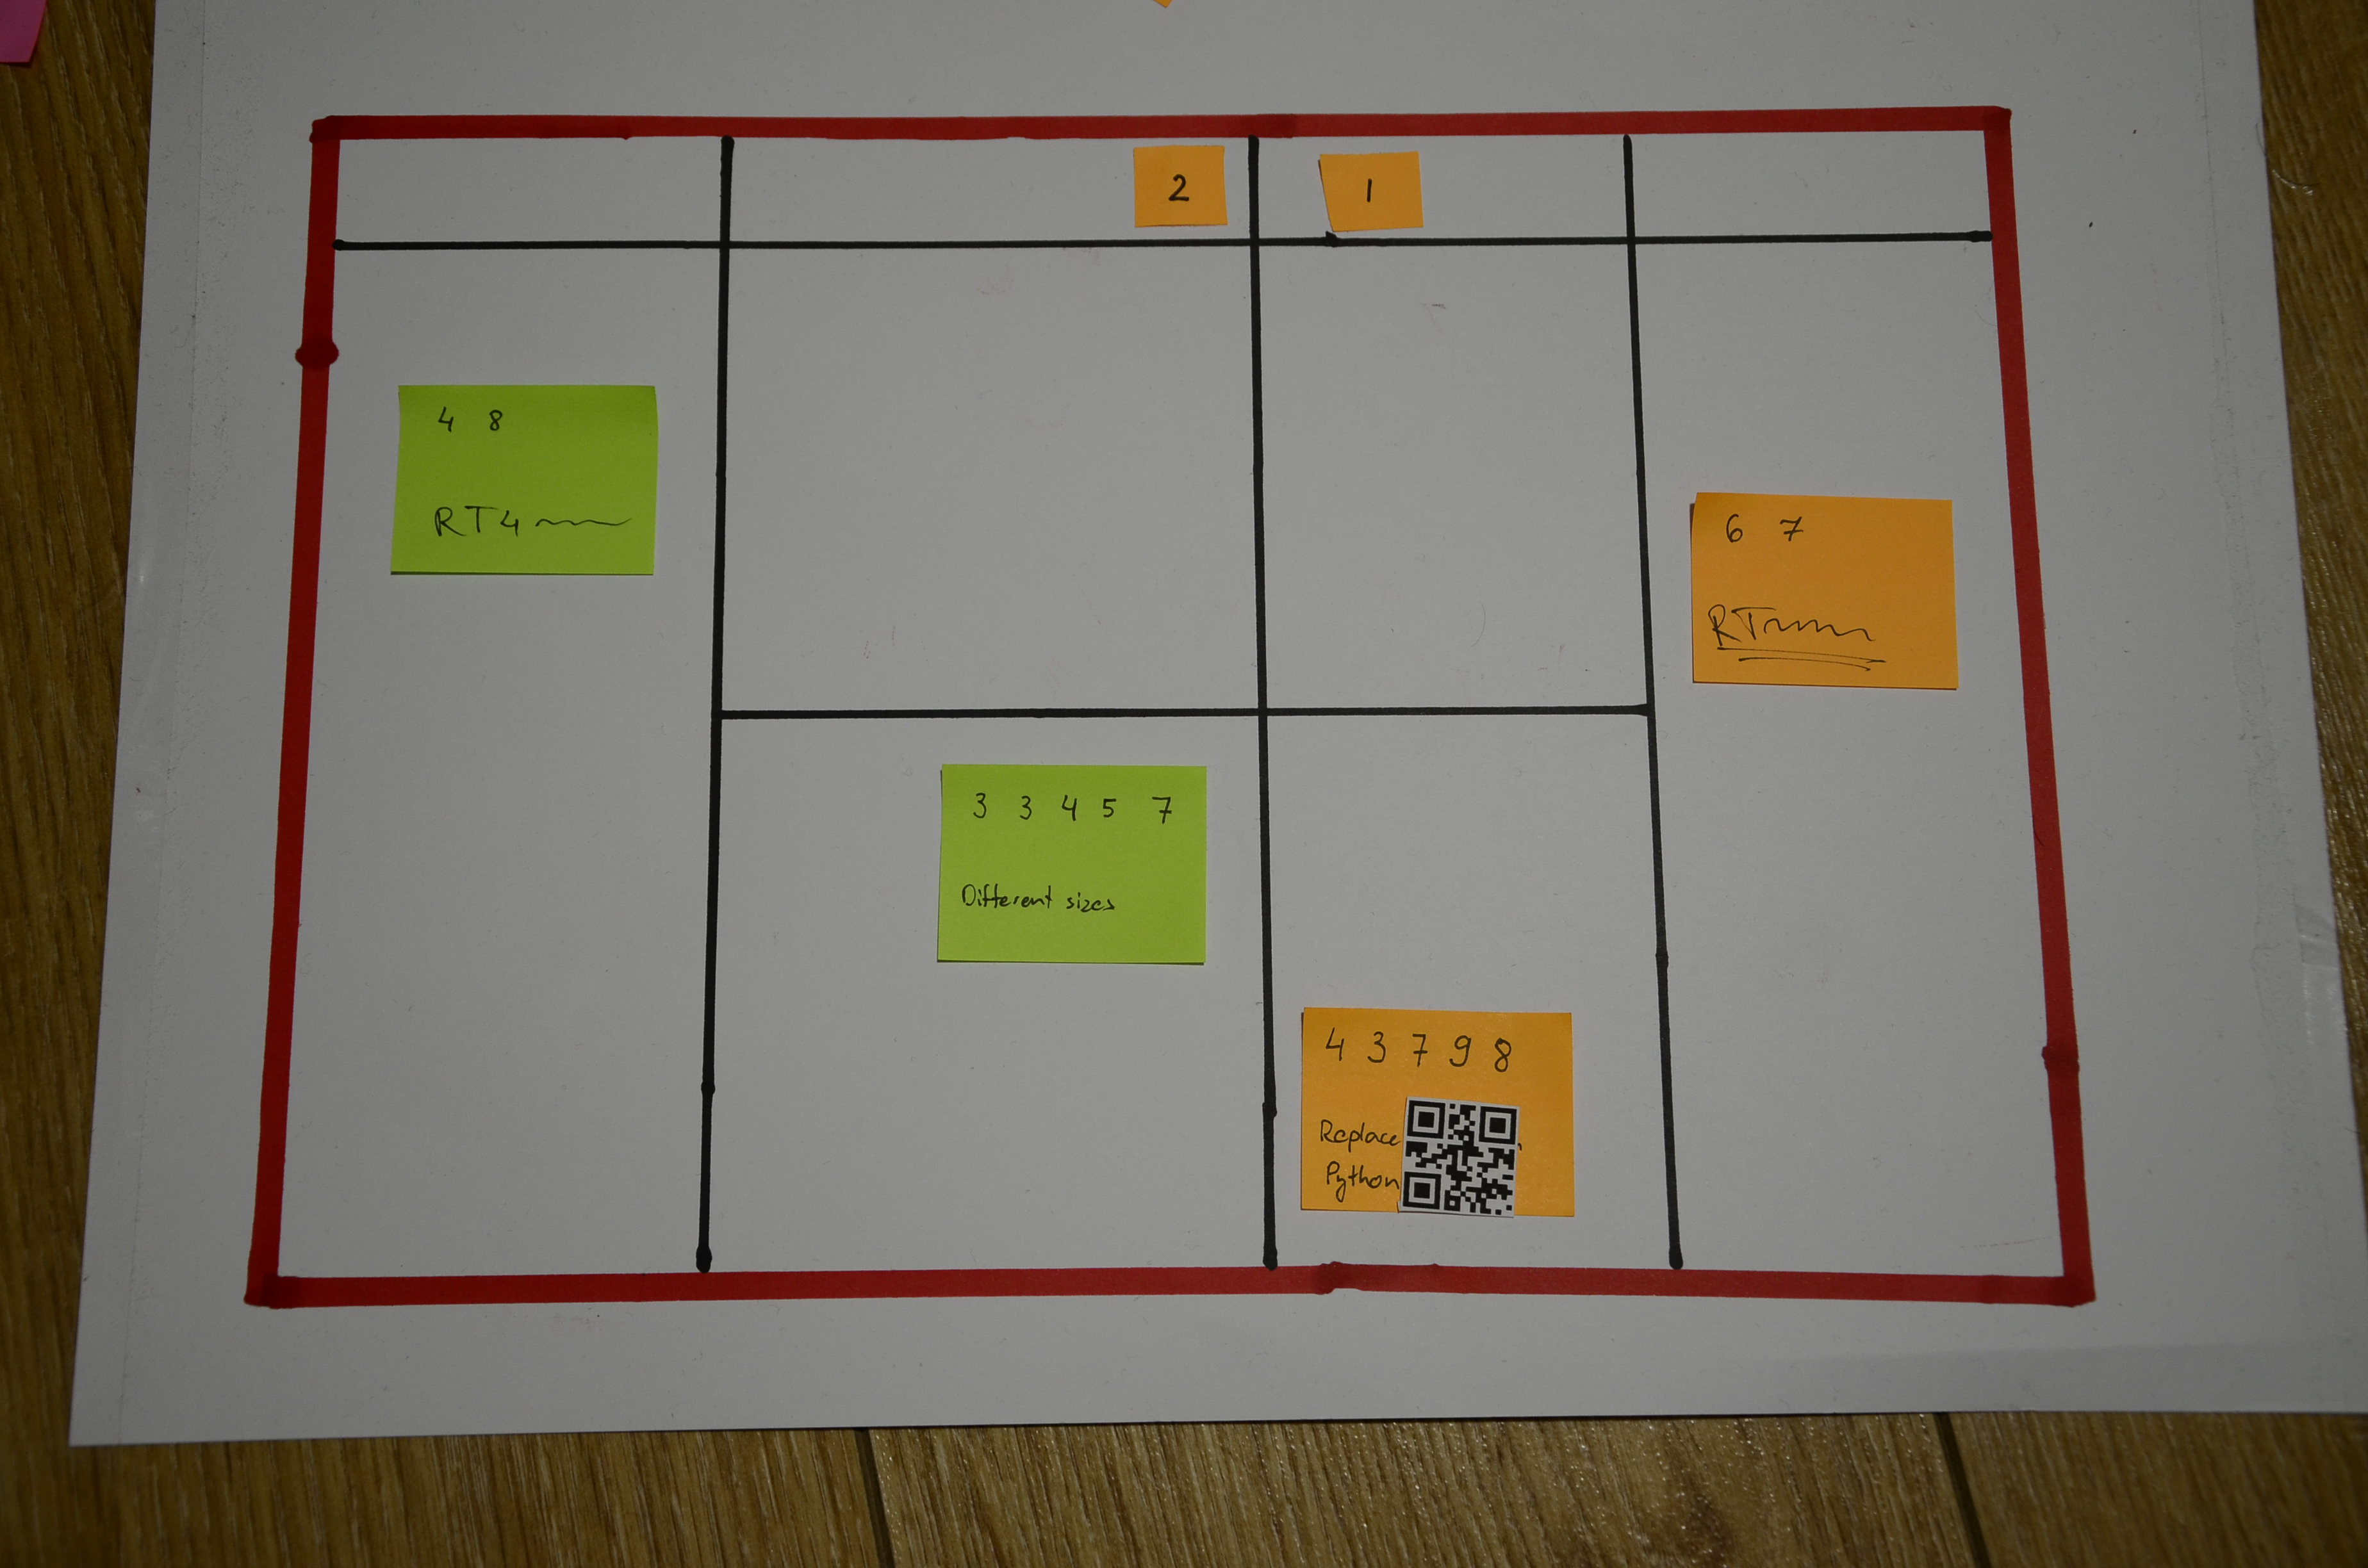 2
1
4 8
RT4
6 7
RT
3 3 4 5 7
Different sizes
4 3 7 9 8
Replace
Python